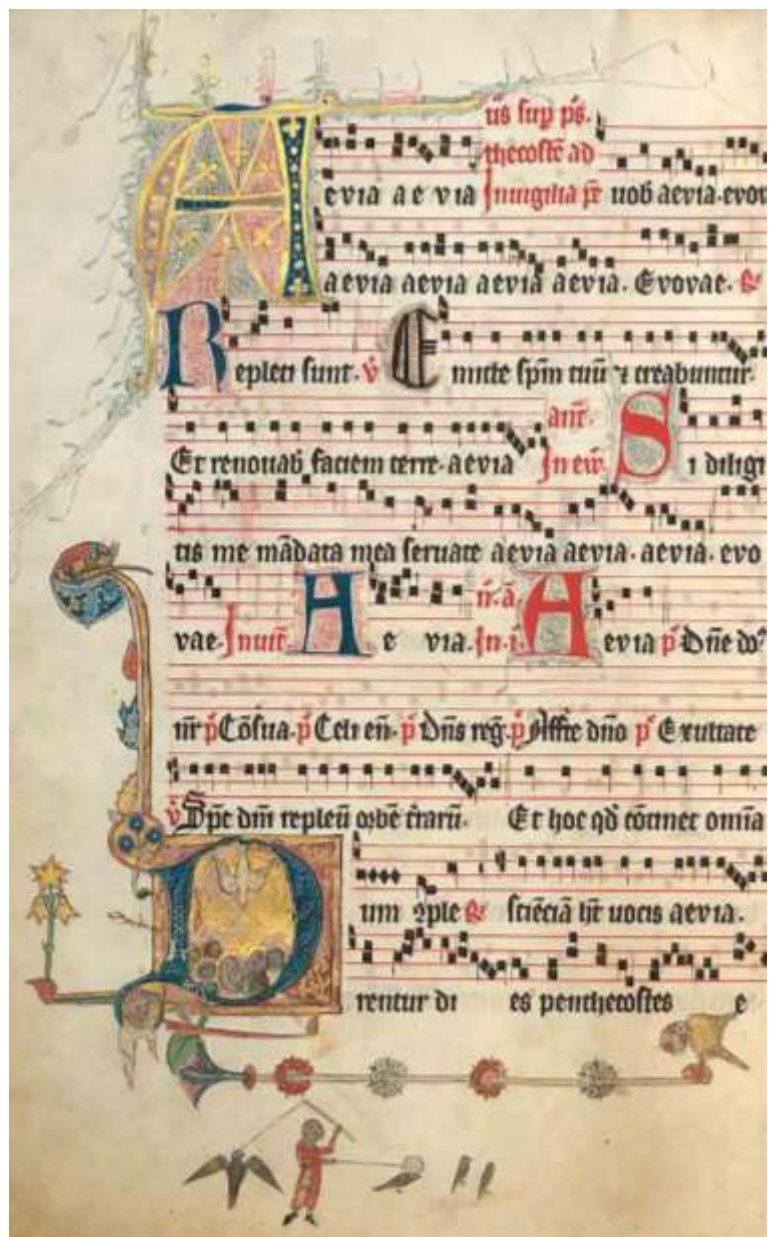 ūs sup ps.
thecostē ad
A evia a e v ia In uigilia pē uob aevia. evov
aevia aevia aevia aevia. Evovae. R
Repleti sunt. v Emitte spm tuū ⁊ creabuntur.
Et renouab faciem terre. aevia ant. In ew. Si diligi
tis me mādata mea seruate aevia aevia. aevia. evo
vae. Inuit. A e via. In .i. n. a. Aevia p Dne do
nr p Cōsua. p Celi en. p Dns reg. p Affte dno p Exultate
v Spc dm repleū orbē trarū. Et hoc qd cōtinet omīa
Dum ple R sciēciā ht uocis aevia.
rentur di es penthecostes e